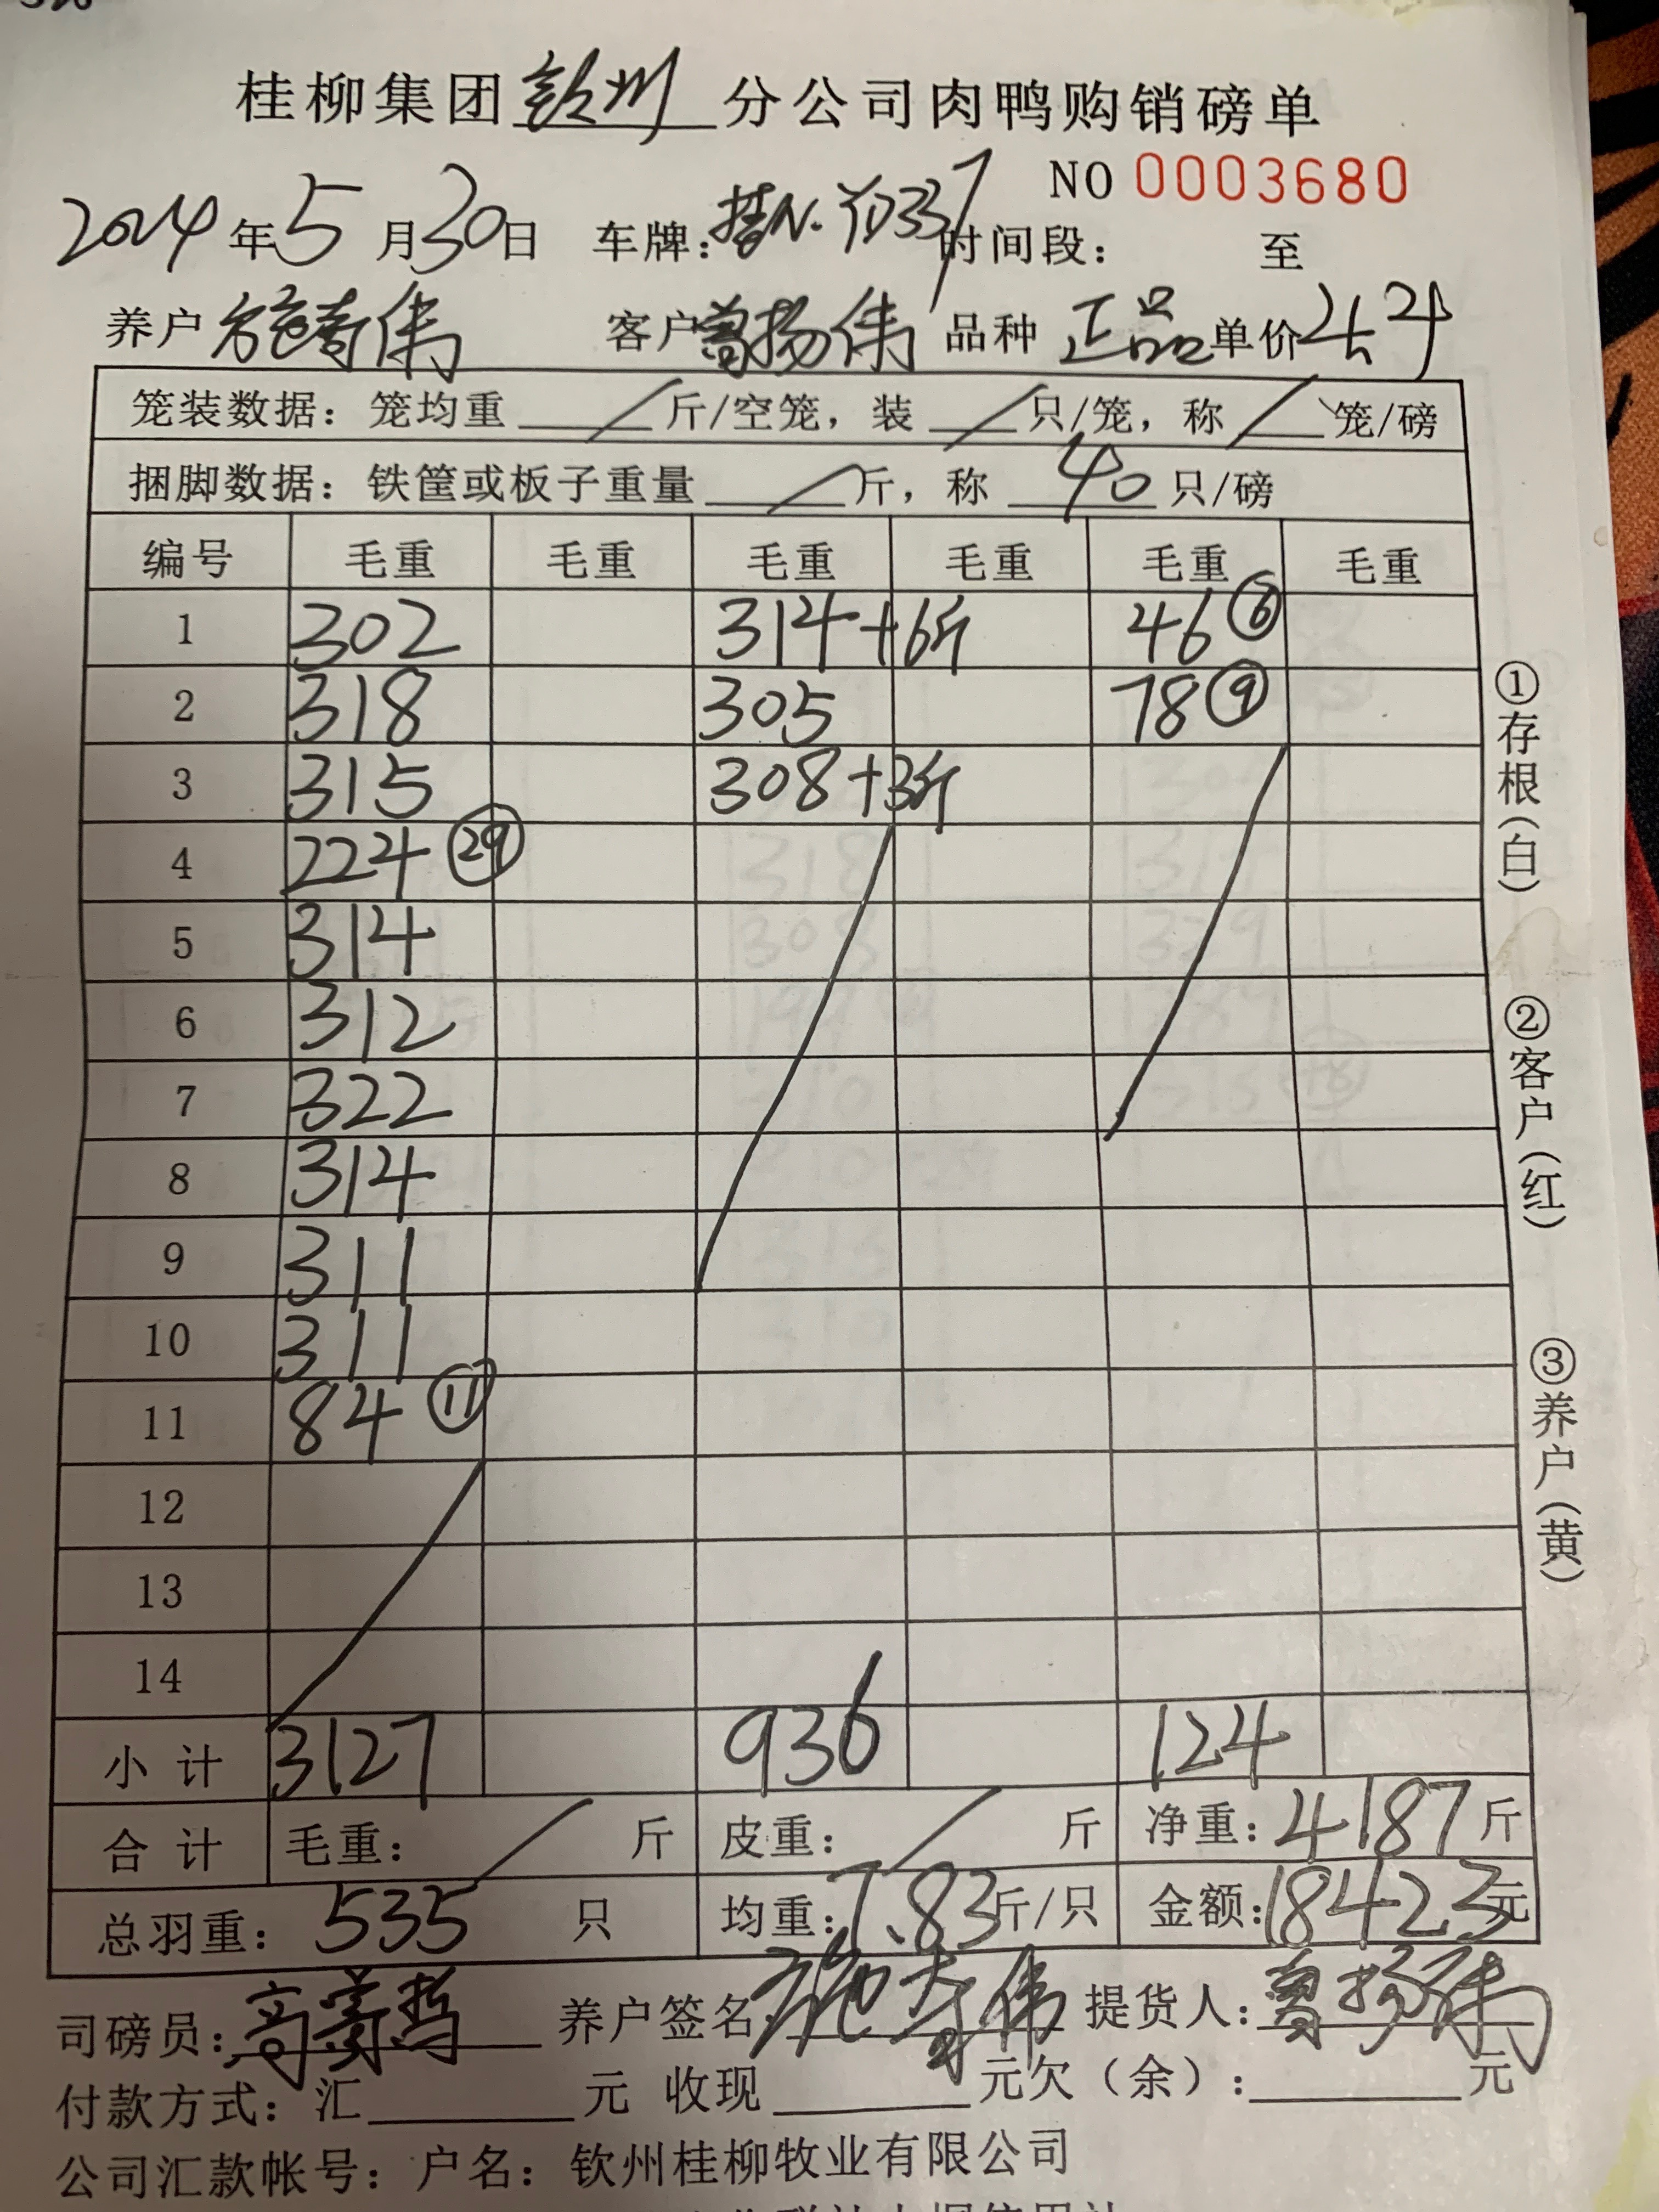 桂柳集团钦州分公司肉鸭购销磅单
NO 0003680
2024年5月30日 车牌:桂N·YD337 时间段: 至
养户 施寿伟 客户 曾扬伟 品种 正品 单价 4.4
笼装数据:笼均重 / 斤/空笼,装 / 只/笼,称 / 笼/磅
捆脚数据:铁筐或板子重量 / 斤,称 40 只/磅
编号 毛重 毛重 毛重 毛重 毛重 毛重
1 302 314+6斤 46⑥
2 318 305 78⑨
3 315 308+3斤
4 224㉙
5 314
6 312
7 322
8 314
9 311
10 311
11 84⑪
12
13
14
小计 3127 936 124
合计 毛重: / 斤 皮重: / 斤 净重:4187斤
总羽重:535 只 均重:7.83斤/只 金额:18423元
司磅员: 养户签名:施寿伟 提货人:曾扬伟
付款方式:汇 元 收现 元欠(余): 元
公司汇款帐号:户名:钦州桂柳牧业有限公司
①存根(白) ②客户(红) ③养户(黄)